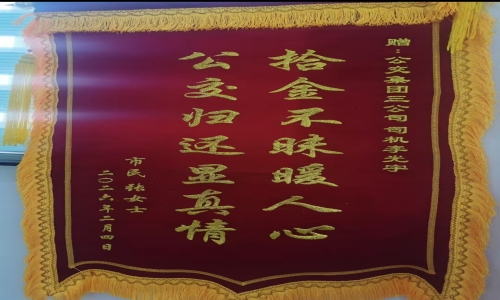 赠：公交集团三公司司机李光宇
拾金不昧暖人心
公交归还显真情
市民张女士
二〇二六年二月四日